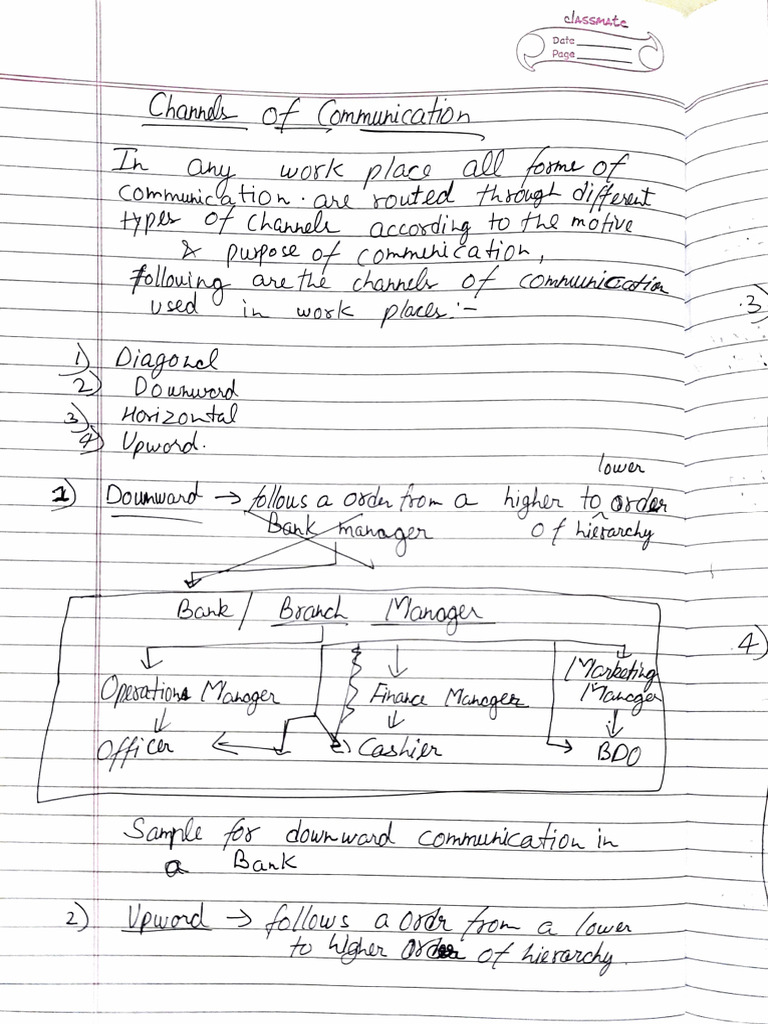 classmate
Date
Page
Channels of Communication
In any work place all forms of
communication. are routed through different
types of channels according to the motive
& purpose of communication,
following are the channels of communication
used in work places:-
3)
1) Diagonal
2) Downward
3) Horizontal
4) Upword.
lower
1) Downward → follows a order from a higher to order
Bank manager of hierarchy
Bank / Branch Manager
4)
Marketing
Operations Manager Finance Manager Manager
Officer Cashier BDO
Sample for downward communication in
a Bank
2) Upword → follows a order from a lower
to higher order of hierarchy.